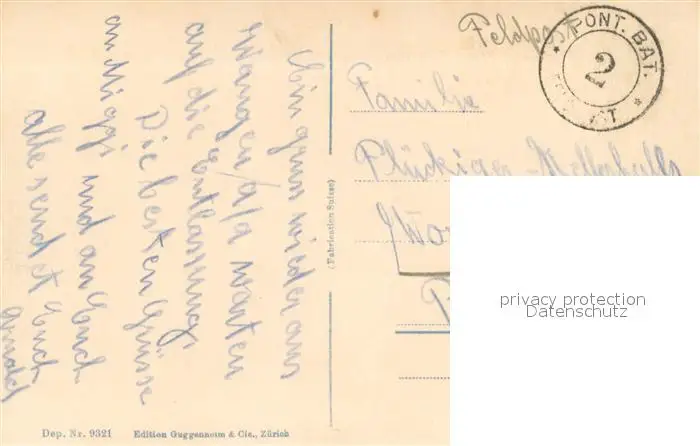 Ein gruss wieder aus
Wangen a/a warten
auf die Entlassung,
Die besten Grüsse
an Miggi und an Euch
alle sendet Euch
Arnold
Feldpost
PONT. BAT.
2
Familie
Flückiger
(Fabrication Suisse)
privacy protection
Datenschutz
Dep. Nr. 9321 Edition Guggenheim & Cie., Zürich